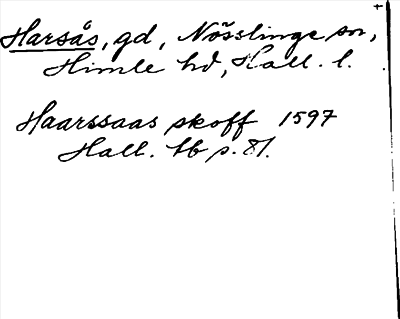 Harsås, gd, Nösslinge sn,
Himle hd, Hall. l.
Haarssaas skoff 1597
Hall. tb p. 81.